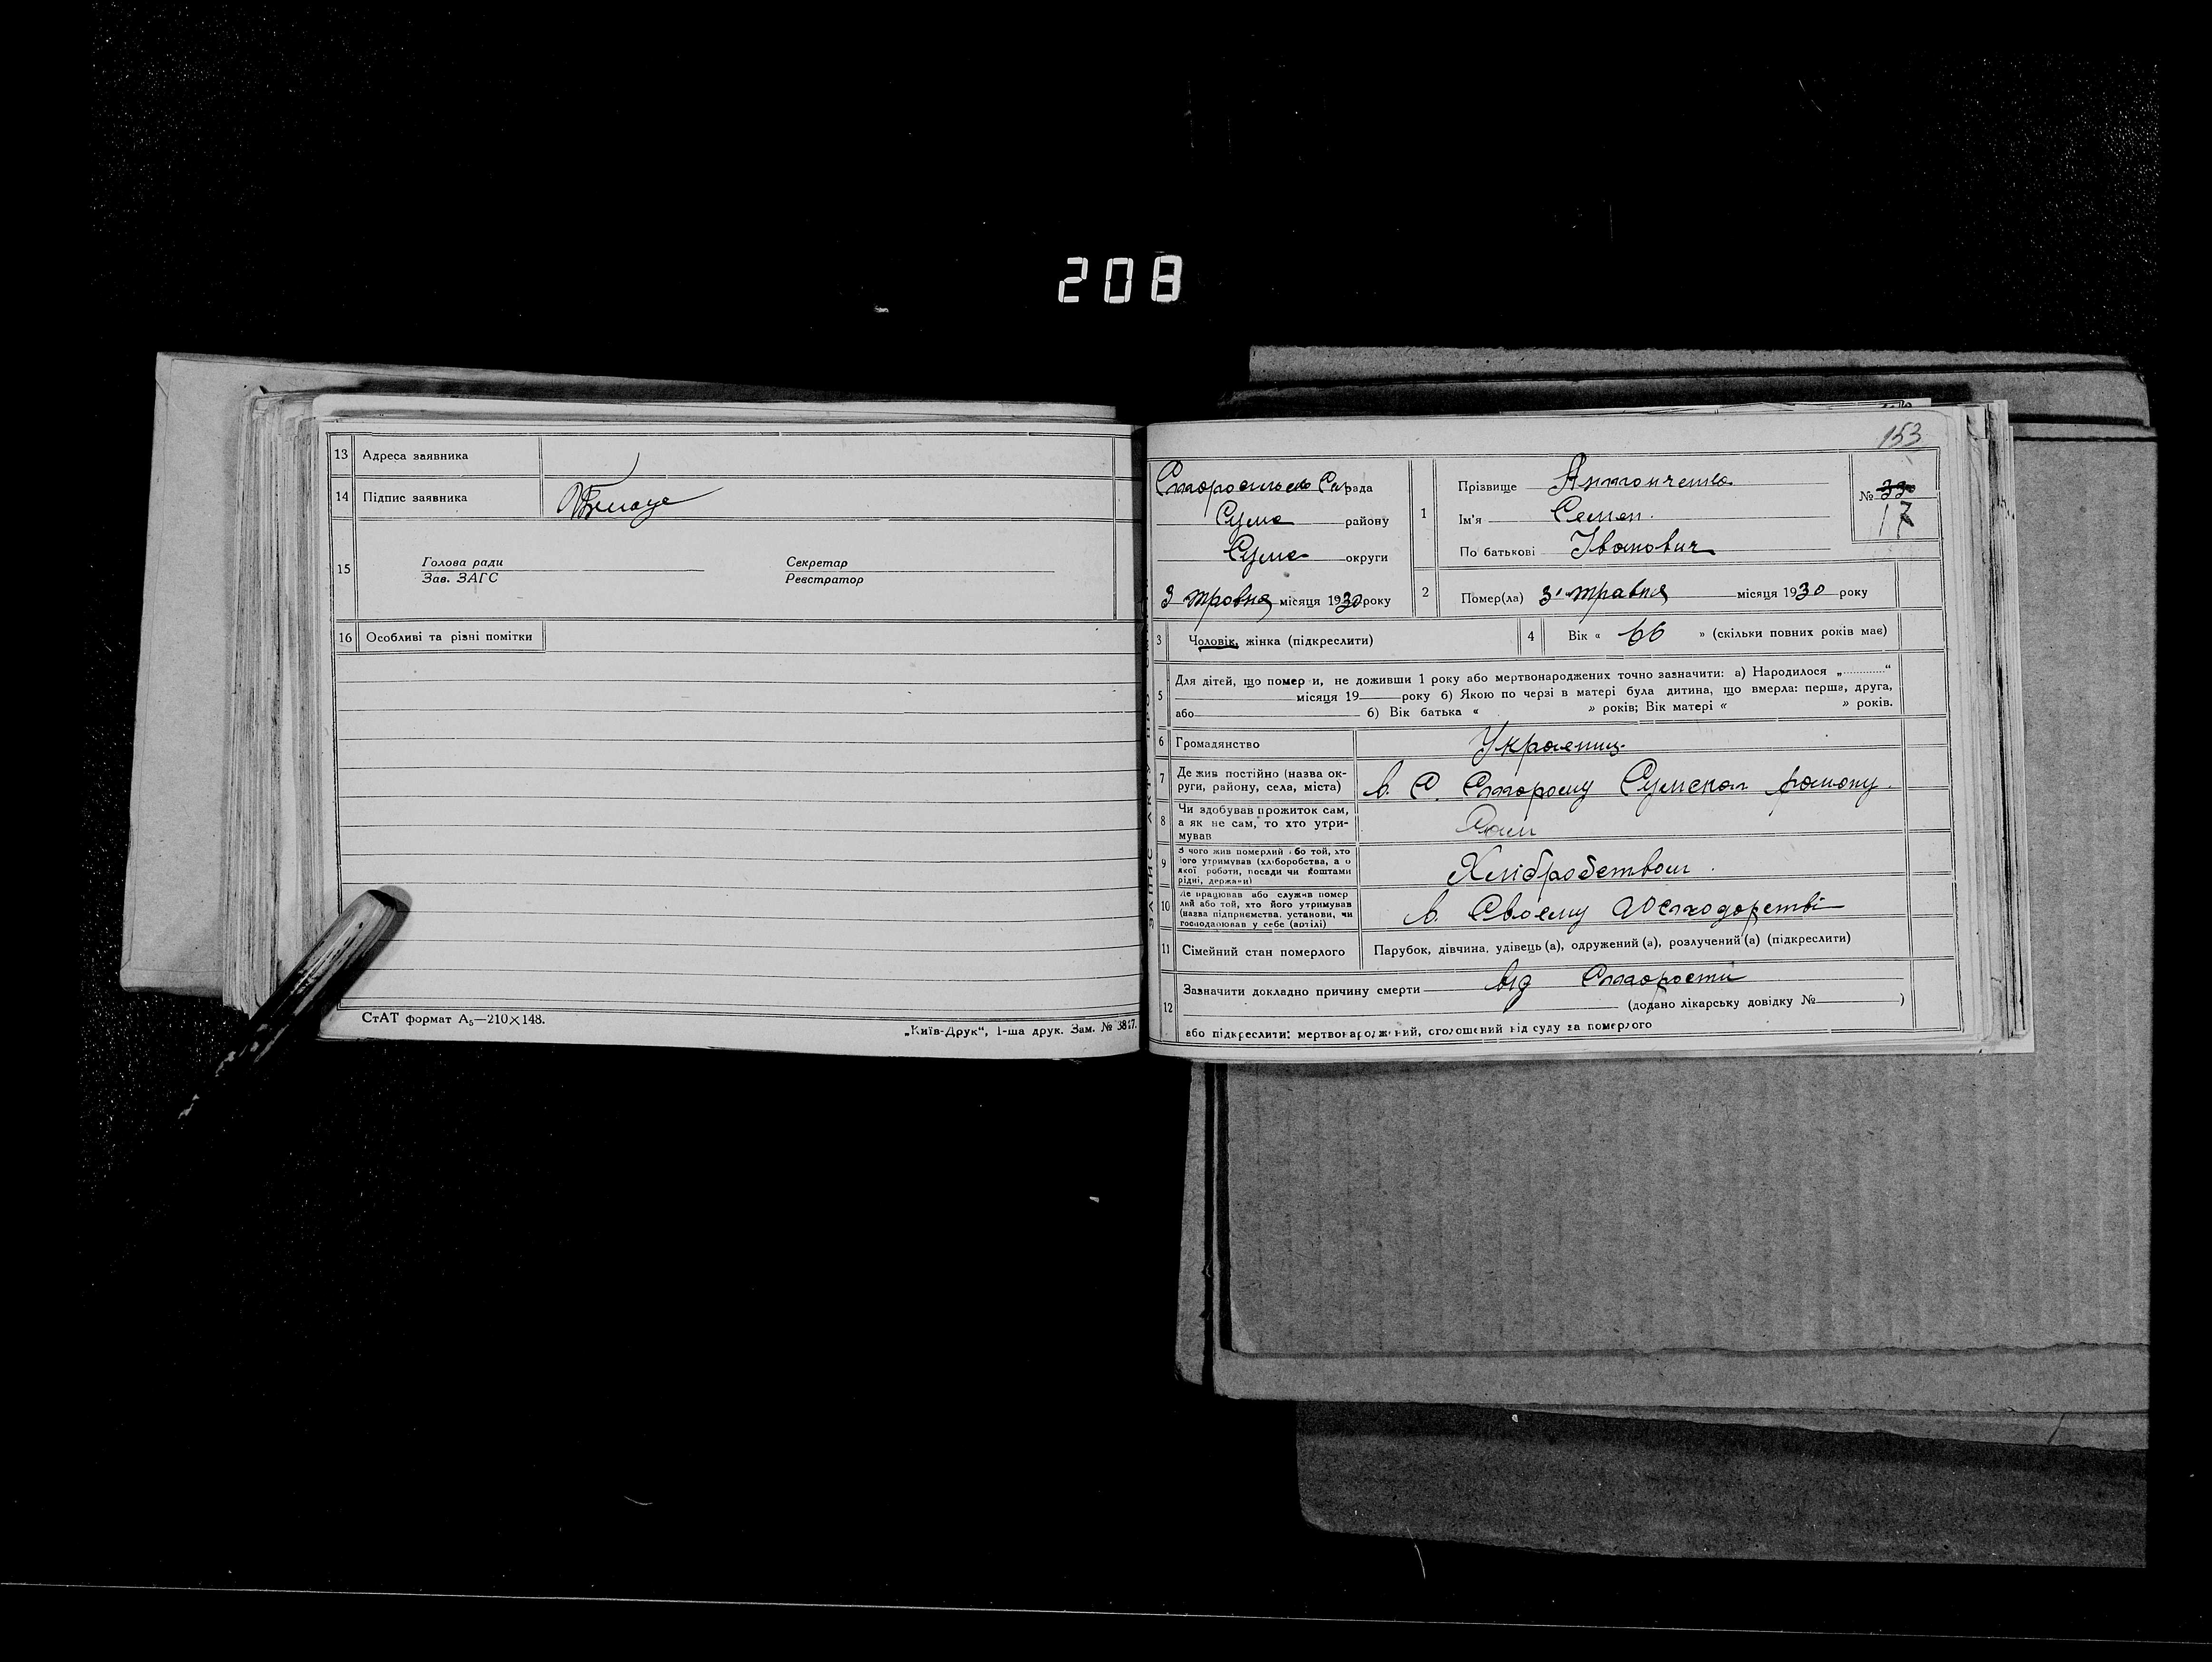 208
13 Адреса заявника
14 Підпис заявника
15 Голова ради Секретар
Зав. ЗАГС Реєстратор
16 Особливі та різні помітки
СтАТ формат А₅—210×148.
„Київ-Друк“, 1-ша друк. Зам. № 3817.
153
рада
Суме району
Суме округи
3 травня місяця 1930 року
1 Прізвище Антонченко
Ім'я Семен.
По батькові Іванович
№ 330
17
2 Помер(ла) 3 травня місяця 1930 року
3 Чоловік, жінка (підкреслити)
4 Вік « 66 » (скільки повних років має)
5 Для дітей, що померли, не доживши 1 року або мертвонароджених точно зазначити: а) Народилося „ “
місяця 19 року б) Якою по черзі в матері була дитина, що вмерла: перша, друга,
або б) Вік батька « » років; Вік матері « » років.
6 Громадянство Украениц
7 Де жив постійно (назва ок-
руги, району, села, міста) в. С. Старому Сумском району.
8 Чи здобував прожиток сам,
а як не сам, то хто утри-
мував Сам
9 З чого жив померлий або той, хто
його утримував (хліборобства, а о
якої роботи, посади чи коштами
рідні, держави) Хлібробством.
10 Де працював або служив помер
лий або той, хто його утримував
(назва підприємства, установи, чи
господарював у себе (артілі) в. Своему
11 Сімейний стан померлого Парубок, дівчина, удівець (а), одружений (а), розлучений (а) (підкреслити)
12 Зазначити докладно причину смерти від Старости
(додано лікарську довідку № )
або підкреслити: мертвонароджений, оголошений від суду за померлого